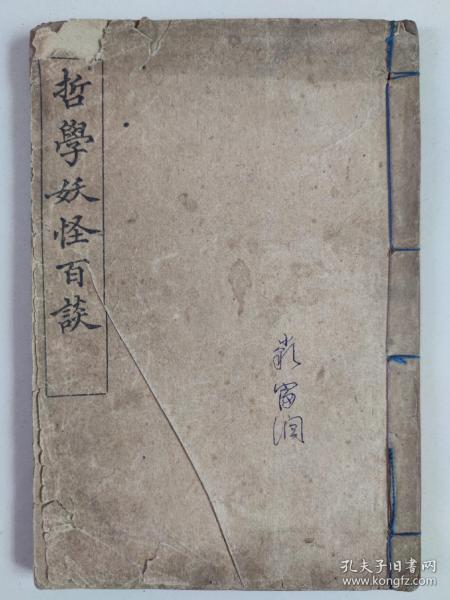 哲學妖怪百談
富润
孔夫子旧书网
www.kongfz.com